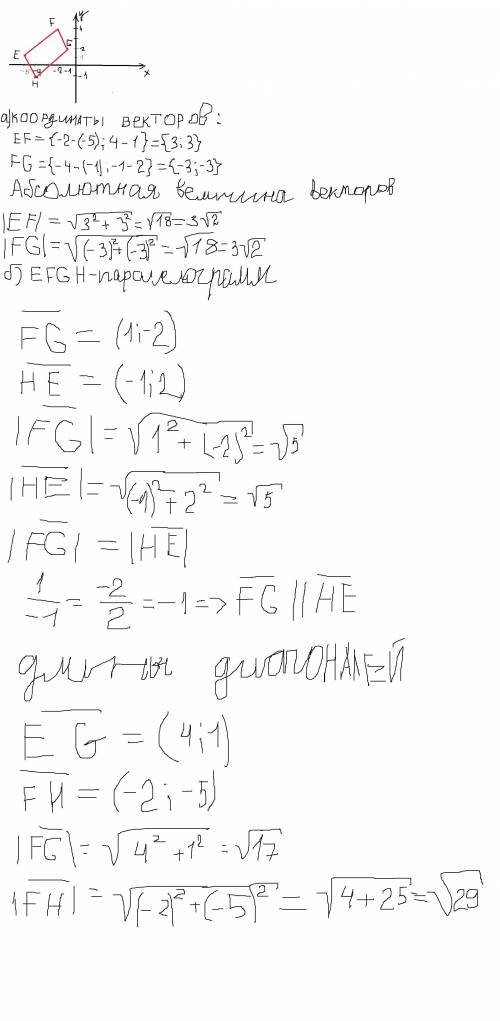 y
F
4
G
2
E
1
-5 -4 -2 -1
x
-1
H
а)координаты векторов:
EF={-2-(-5); 4-1}={3;3}
FG={-4-(-1);-1-2}={-3;-3}
Абсолютная величина векторов
|EF|=√3²+3²=√18=3√2
|FG|=√(-3)²+(-3)²=√18=3√2
б) EFGH-паралелограмм
FG = (1;-2)
HE = (-1;2)
|FG|=√1²+(-2)²=√5
|HE|=√(-1)²+2²=√5
|FG|=|HE|
1/-1=-2/2=-1=>FG||HE
длины диагоналей
EG = (4;1)
FH = (-2;-5)
|FG|=√4²+1²=√17
|FH|=√(-2)²+(-5)²=√4+25=√29